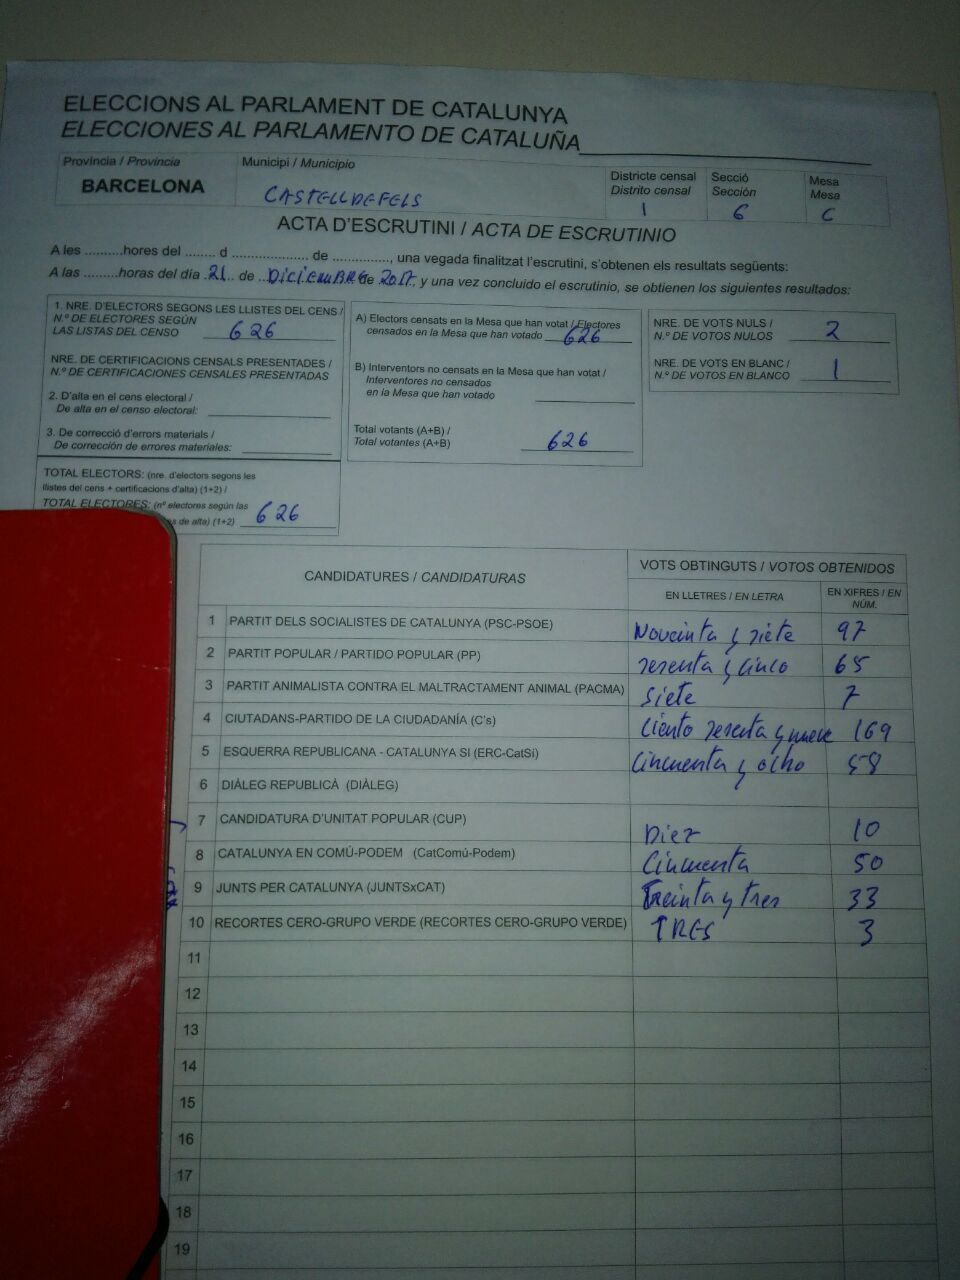 ELECCIONS AL PARLAMENT DE CATALUNYA
ELECCIONES AL PARLAMENTO DE CATALUÑA
Provincia / Provincia
BARCELONA
Municipi / Municipio
CASTELLDEFELS
Districte censal
Distrito censal
1
Secció
Sección
6
Mesa
Mesa
C
ACTA D'ESCRUTINI / ACTA DE ESCRUTINIO
A les .........hores del ........ d .................... de ..............., una vegada finalitzat l'escrutini, s'obtenen els resultats següents:
A las .........horas del día 21 de DICIEMBRE de 2017, y una vez concluido el escrutinio, se obtienen los siguientes resultados:
1. NRE. D'ELECTORS SEGONS LES LLISTES DEL CENS /
N.º DE ELECTORES SEGÚN
LAS LISTAS DEL CENSO 626
NRE. DE CERTIFICACIONS CENSALS PRESENTADES /
N.º DE CERTIFICACIONES CENSALES PRESENTADAS
2. D'alta en el cens electoral /
De alta en el censo electoral:
3. De correcció d'errors materials /
De corrección de errores materiales:
TOTAL ELECTORS: (nre. d'electors segons les
llistes del cens + certificacions d'alta) (1+2) /
TOTAL ELECTORES: (nº electores según las
es de alta) (1+2) 626
A) Electors censats en la Mesa que han votat / Electores
censados en la Mesa que han votado 626
B) Interventors no censats en la Mesa que han votat /
Interventores no censados
en la Mesa que han votado
Total votants (A+B) /
Total votantes (A+B) 626
NRE. DE VOTS NULS /
N.º DE VOTOS NULOS 2
NRE. DE VOTS EN BLANC /
N.º DE VOTOS EN BLANCO 1
CANDIDATURES / CANDIDATURAS
VOTS OBTINGUTS / VOTOS OBTENIDOS
EN LLETRES / EN LETRA
EN XIFRES / EN
NÚM.
1 PARTIT DELS SOCIALISTES DE CATALUNYA (PSC-PSOE) Noveinta y siete 97
2 PARTIT POPULAR / PARTIDO POPULAR (PP) sesenta y cinco 65
3 PARTIT ANIMALISTA CONTRA EL MALTRACTAMENT ANIMAL (PACMA) siete 7
4 CIUTADANS-PARTIDO DE LA CIUDADANÍA (C's) ciento sesenta y nueve 169
5 ESQUERRA REPUBLICANA - CATALUNYA SI (ERC-CatSí) cincuenta y ocho 58
6 DIÀLEG REPUBLICÀ (DIÀLEG)
7 CANDIDATURA D'UNITAT POPULAR (CUP) Diez 10
8 CATALUNYA EN COMÚ-PODEM (CatComú-Podem) Cincuenta 50
9 JUNTS PER CATALUNYA (JUNTSxCAT) Treinta y tres 33
10 RECORTES CERO-GRUPO VERDE (RECORTES CERO-GRUPO VERDE) TRES 3
11
12
13
14
15
16
17
18
19